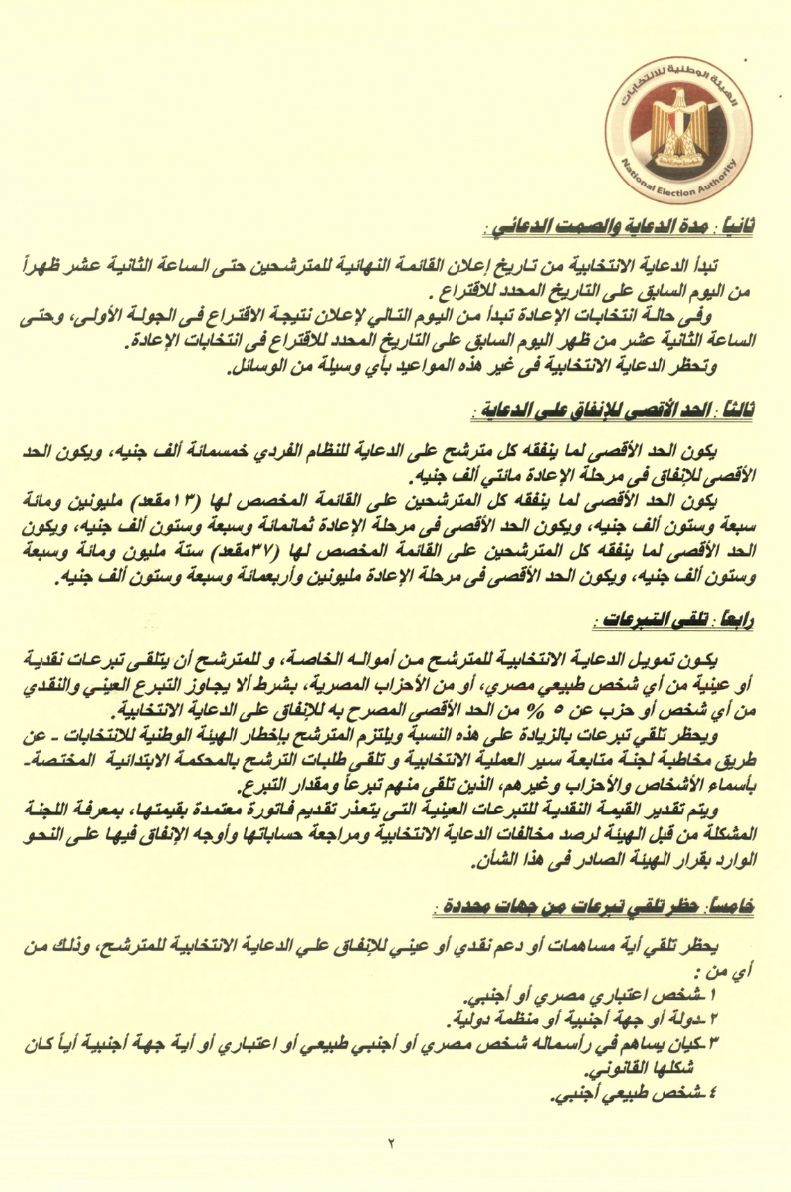 الهيئة الوطنية للانتخابات
National Election Authority
ثانياً : مدة الدعاية والصمت الدعائي :
تبدأ الدعاية الانتخابية من تاريخ إعلان القائمة النهائية للمترشحين حتى الساعة الثانية عشر ظهراً
من اليوم السابق على التاريخ المحدد للاقتراع .
وفى حالة انتخابات الإعادة تبدأ من اليوم التالي لإعلان نتيجة الاقتراع فى الجولة الأولى، وحتى
الساعة الثانية عشر من ظهر اليوم السابق على التاريخ المحدد للاقتراع فى انتخابات الإعادة.
وتحظر الدعاية الانتخابية فى غير هذه المواعيد بأي وسيلة من الوسائل.
ثالثاً : الحد الأقصى للإنفاق على الدعاية :
يكون الحد الأقصى لما ينفقه كل مترشح على الدعاية للنظام الفردي خمسمائة ألف جنيه، ويكون الحد
الأقصى للإنفاق فى مرحلة الإعادة مائتي ألف جنيه.
يكون الحد الأقصى لما ينفقه كل المترشحين على القائمة المخصص لها (١٣مقعد) مليونين ومائة
سبعة وستون ألف جنيه، ويكون الحد الأقصى فى مرحلة الإعادة ثمانمائة وسبعة وستون ألف جنيه، ويكون
الحد الأقصى لما ينفقه كل المترشحين على القائمة المخصص لها (٣٧مقعد) ستة مليون ومائة وسبعة
وستون ألف جنيه، ويكون الحد الأقصى فى مرحلة الإعادة مليونين وأربعمائة وسبعة وستون ألف جنيه.
رابعاً : تلقى التبرعات :
يكون تمويل الدعاية الانتخابية للمترشح من أمواله الخاصة، و للمترشح أن يتلقى تبرعات نقدية
أو عينية من أي شخص طبيعي مصري، أو من الأحزاب المصرية، بشرط ألا يجاوز التبرع العيني والنقدي
من أي شخص أو حزب عن ٥ % من الحد الأقصى المصرح به للإنفاق على الدعاية الانتخابية.
ويحظر تلقي تبرعات بالزيادة على هذه النسبة ويلتزم المترشح بإخطار الهيئة الوطنية للانتخابات - عن
طريق مخاطبة لجنة متابعة سير العملية الانتخابية و تلقي طلبات الترشح بالمحكمة الابتدائية المختصة-
بأسماء الأشخاص والأحزاب وغيرهم، الذين تلقى منهم تبرعاً ومقدار التبرع.
ويتم تقدير القيمة النقدية للتبرعات العينية التى يتعذر تقديم فاتورة معتمدة بقيمتها، بمعرفة اللجنة
المشكلة من قبل الهيئة لرصد مخالفات الدعاية الانتخابية ومراجعة حساباتها وأوجه الإنفاق فيها على النحو
الوارد بقرار الهيئة الصادر فى هذا الشأن.
خامساً: حظر تلقي تبرعات من جهات محددة :
يحظر تلقي أية مساهمات أو دعم نقدي أو عيني للإنفاق علي الدعاية الانتخابية للمترشح، وذلك من
أي من :
١-شخص اعتباري مصري أو أجنبي.
٢-دولة أو جهة أجنبية أو منظمة دولية.
٣-كيان يساهم في رأسماله شخص مصري أو أجنبي طبيعي أو اعتباري أو أية جهة أجنبية أياً كان
شكلها القانوني.
٤-شخص طبيعي أجنبي.
٢